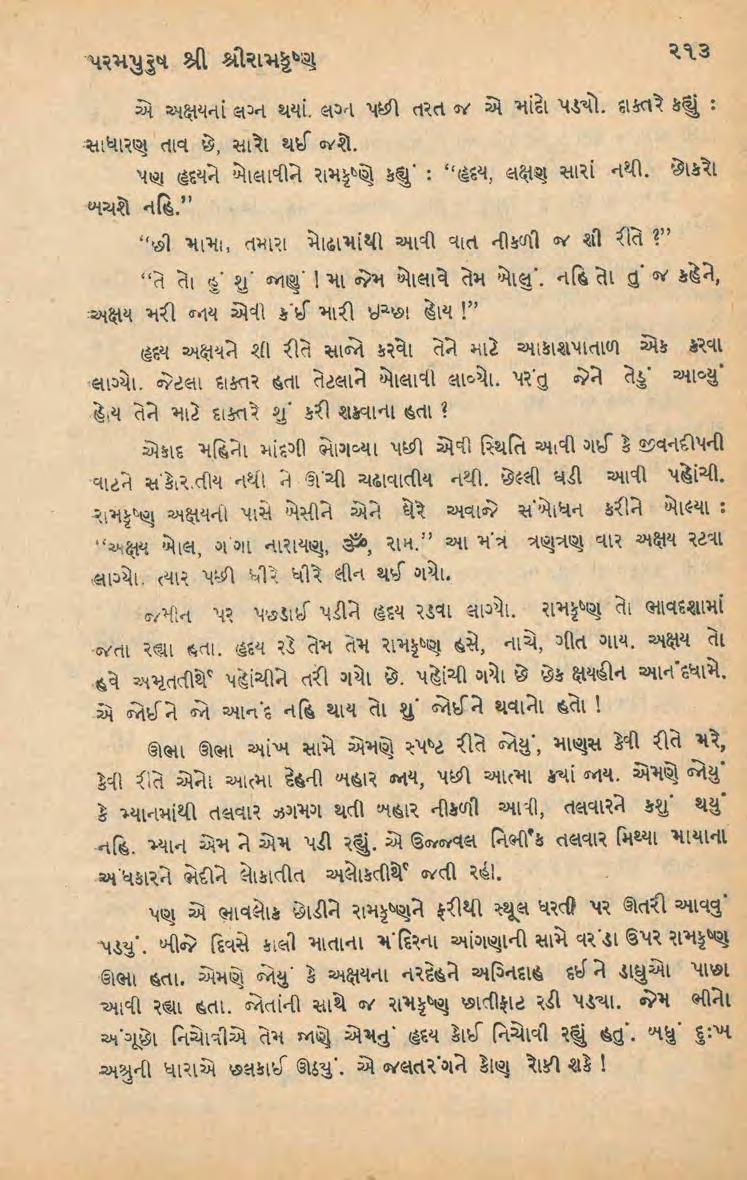 પરમપુરુષ શ્રી શ્રીરામકૃષ્ણ
૨૧૩
એ અક્ષયનાં લગ્ન થયાં. લગ્ન પછી તરત જ એ માંદો પડયો. દાક્તરે કહ્યું :
સાધારણ તાવ છે, સારો થઈ જશે.
પણ હૃદયને બોલાવીને રામકૃષ્ણે કહ્યું : “હૃદય, લક્ષણ સારાં નથી. છોકરો
બચશે નહિ.”
“છી મામા, તમારા મોઢામાંથી આવી વાત નીકળી જ શી રીતે ?”
“તે તો હું શું જાણું ! મા જેમ બોલાવે તેમ બોલું. નહિ તો તું જ કહેને,
અક્ષય મરી જાય એવી કંઈ મારી ઇચ્છા હોય !”
હૃદય અક્ષયને શી રીતે સાજો કરવો તેને માટે આકાશપાતાળ એક કરવા
લાગ્યો. જેટલા દાક્તર હતા તેટલાને બોલાવી લાવ્યો. પરંતુ જેને તેડું આવ્યું
હોય તેને માટે દાક્તરે શું કરી શકવાના હતા ?
એકાદ મહિનો માંદગી ભોગવ્યા પછી એવી સ્થિતિ આવી ગઈ કે જીવનદીપની
વાટને સંકોરાતીય નથી ને ઊંચી ચઢાવાતીય નથી. છેલ્લી ઘડી આવી પહોંચી.
રામકૃષ્ણ અક્ષયની પાસે બેસીને એને ઘેરે અવાજે સંબોધન કરીને બોલ્યા :
“અક્ષય બોલ, ગંગા નારાયણ, ૐ, રામ.” આ મંત્ર ત્રણત્રણ વાર અક્ષય રટવા
લાગ્યો. ત્યાર પછી ધીરે ધીરે લીન થઈ ગયો.
જમીન પર પછડાઈ પડીને હૃદય રડવા લાગ્યો. રામકૃષ્ણ તો ભાવદશામાં
જતા રહ્યા હતા. હૃદય રડે તેમ તેમ રામકૃષ્ણ હસે, નાચે, ગીત ગાય. અક્ષય તો
હવે અમૃતતીર્થે પહોંચીને તરી ગયો છે. પહોંચી ગયો છે છેક ક્ષયહીન આનંદધામે.
એ જોઈને જો આનંદ નહિ થાય તો શું જોઈને થવાનો હતો !
ઊભા ઊભા આંખ સામે એમણે સ્પષ્ટ રીતે જોયું, માણસ કેવી રીતે મરે,
કેવી રીતે એનો આત્મા દેહની બહાર જાય, પછી આત્મા ક્યાં જાય. એમણે જોયું
કે મ્યાનમાંથી તલવાર ઝગમગ થતી બહાર નીકળી આવી, તલવારને કશું થયું
નહિ. મ્યાન એમ ને એમ પડી રહ્યું. એ ઉજ્જવલ નિર્ભીક તલવાર મિથ્યા માયાના
અંધકારને ભેદીને લોકાતીત અલોકતીર્થે જતી રહી.
પણ એ ભાવલોક છોડીને રામકૃષ્ણને ફરીથી સ્થૂલ ધરતી પર ઊતરી આવવું
પડયું. બીજે દિવસે કાલી માતાના મંદિરના આંગણાની સામે વરંડા ઉપર રામકૃષ્ણ
ઊભા હતા. એમણે જોયું કે અક્ષયના નરદેહને અગ્નિદાહ દઈને ડાઘુઓ પાછા
આવી રહ્યા હતા. જોતાંની સાથે જ રામકૃષ્ણ છાતીફાટ રડી પડ્યા. જેમ ભીનો
અંગૂછો નિચોવીએ તેમ જાણે એમનું હૃદય કોઈ નિચોવી રહ્યું હતું. બધું દુઃખ
અશ્રુની ધારાએ છલકાઈ ઊઠયું. એ જલતરંગને કોણ રોકી શકે !